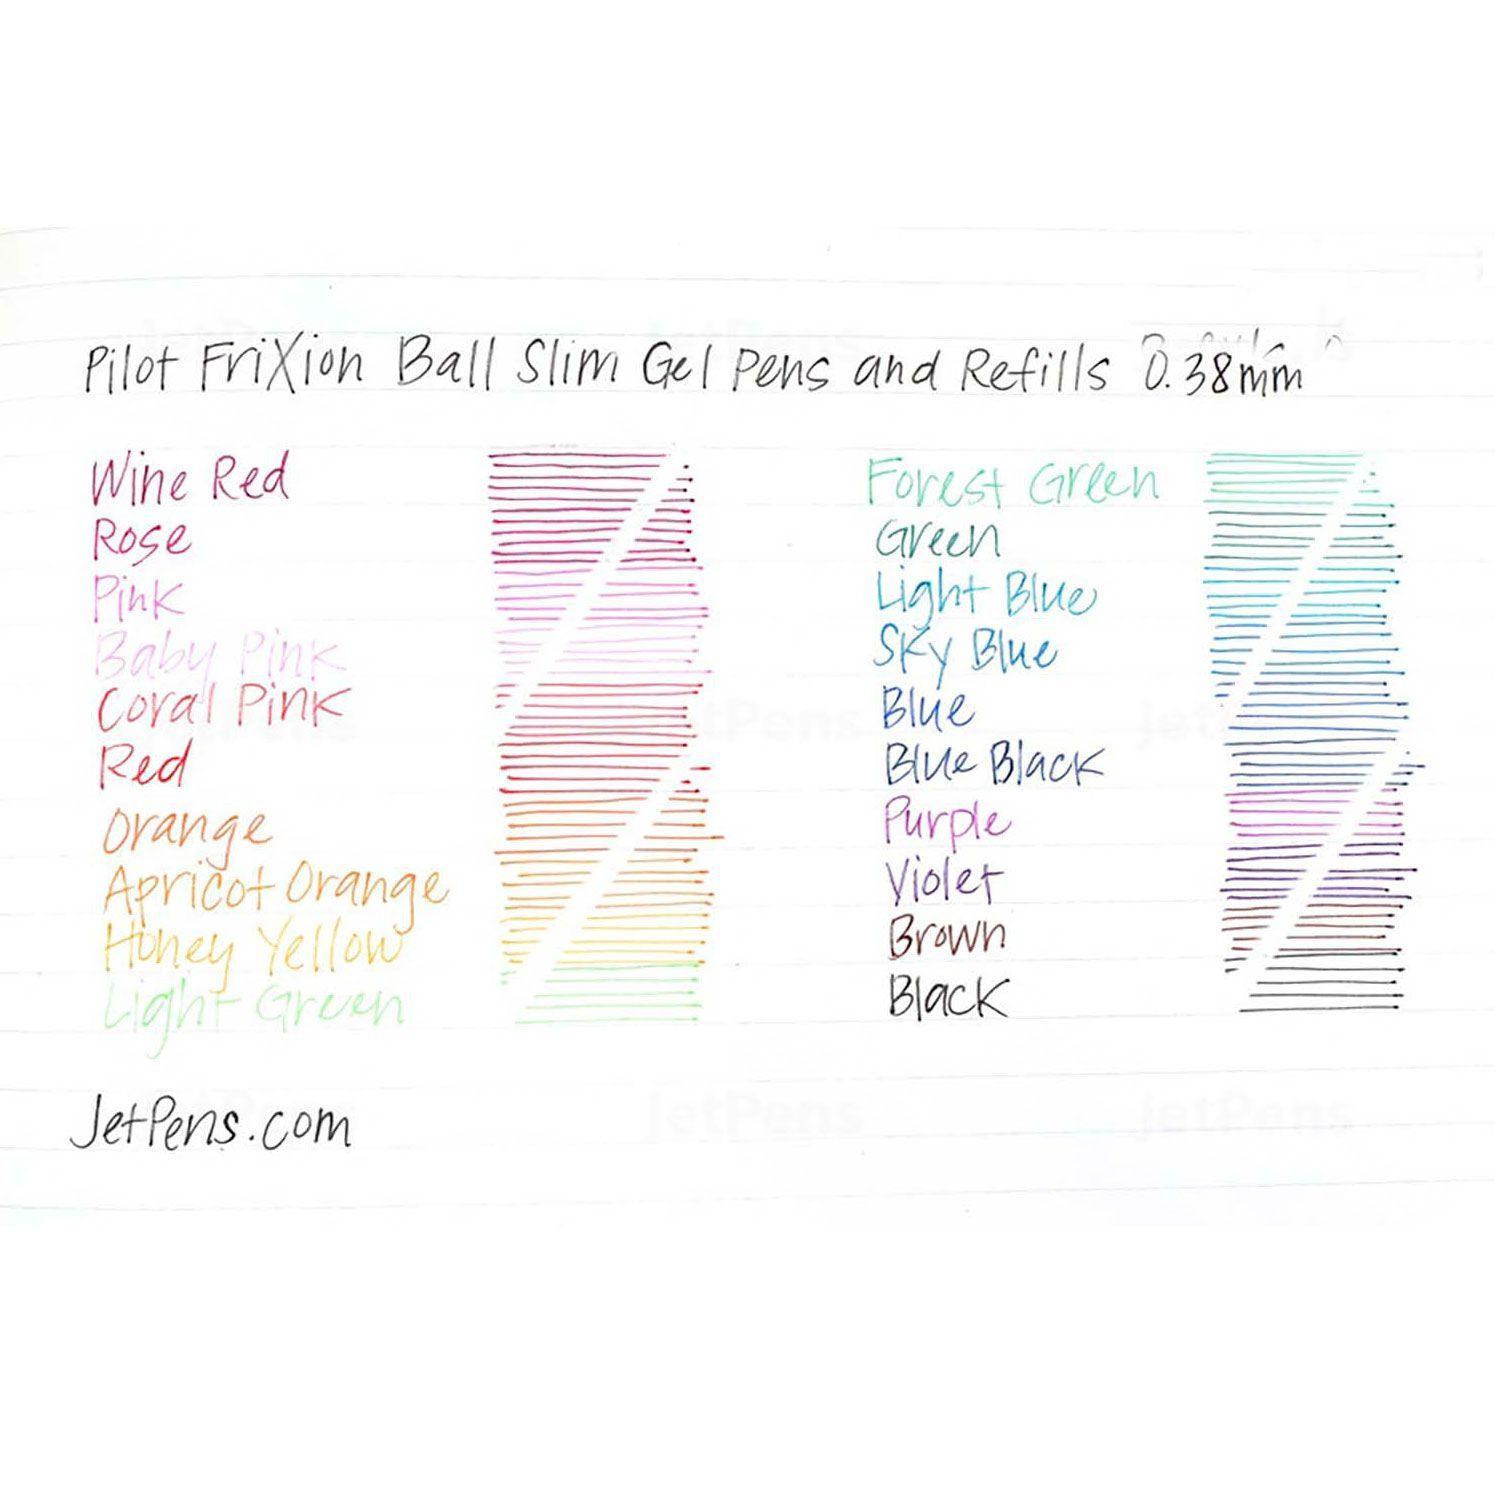 Pilot FriXion Ball Slim Gel Pens and Refills 0.38mm
Wine Red
Rose
Pink
Baby Pink
Coral Pink
Red
Orange
Apricot Orange
Honey Yellow
Light Green
Forest Green
Green
Light Blue
Sky Blue
Blue
Blue Black
Purple
Violet
Brown
Black
JetPens.com
JetPens
JetPens